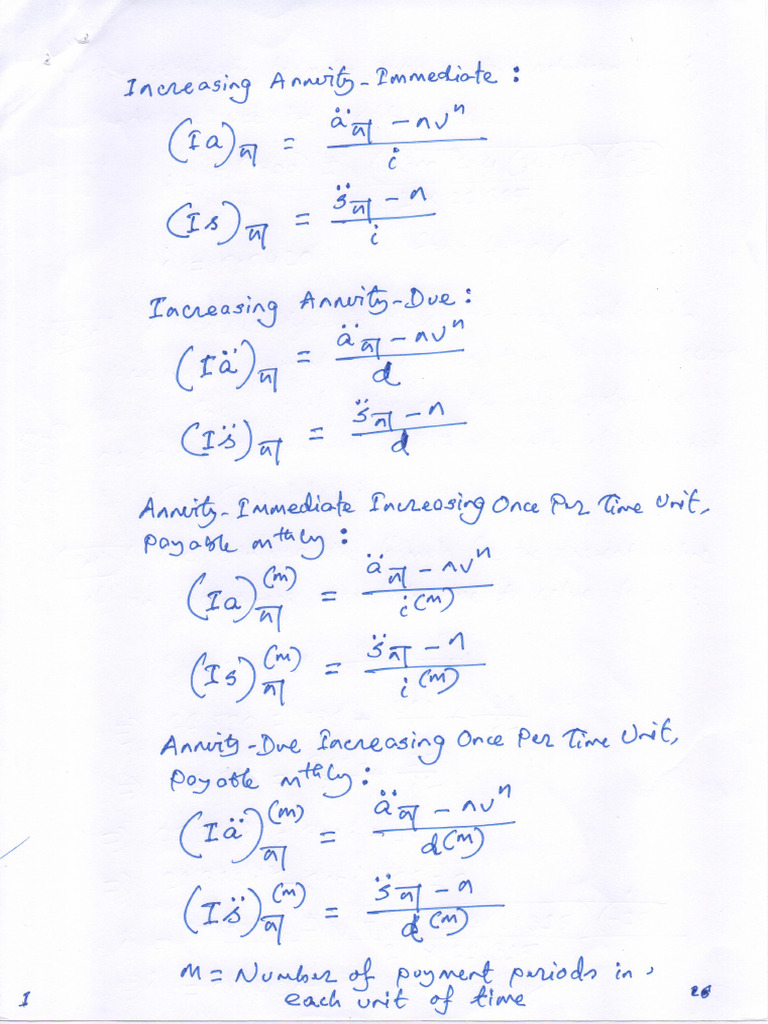 Increasing Annuity-Immediate :
(Ia)n̅| = (ä n̅| - nvⁿ) / i
(Is)n̅| = (s̈ n̅| - n) / i
Increasing Annuity-Due :
(Iä)n̅| = (ä n̅| - nvⁿ) / d
(Is̈)n̅| = (s̈ n̅| - n) / d
Annuity-Immediate Increasing Once Per Time Unit,
payable mthly :
(Ia)⁽ᵐ⁾n̅| = (ä n̅| - nvⁿ) / i⁽ᵐ⁾
(Is)⁽ᵐ⁾n̅| = (s̈ n̅| - n) / i⁽ᵐ⁾
Annuity-Due Increasing Once Per Time Unit,
payable mthly :
(Iä)⁽ᵐ⁾n̅| = (ä n̅| - nvⁿ) / d⁽ᵐ⁾
(Is̈)⁽ᵐ⁾n̅| = (s̈ n̅| - n) / d⁽ᵐ⁾
m = Number of payment periods in
each unit of time
I
26